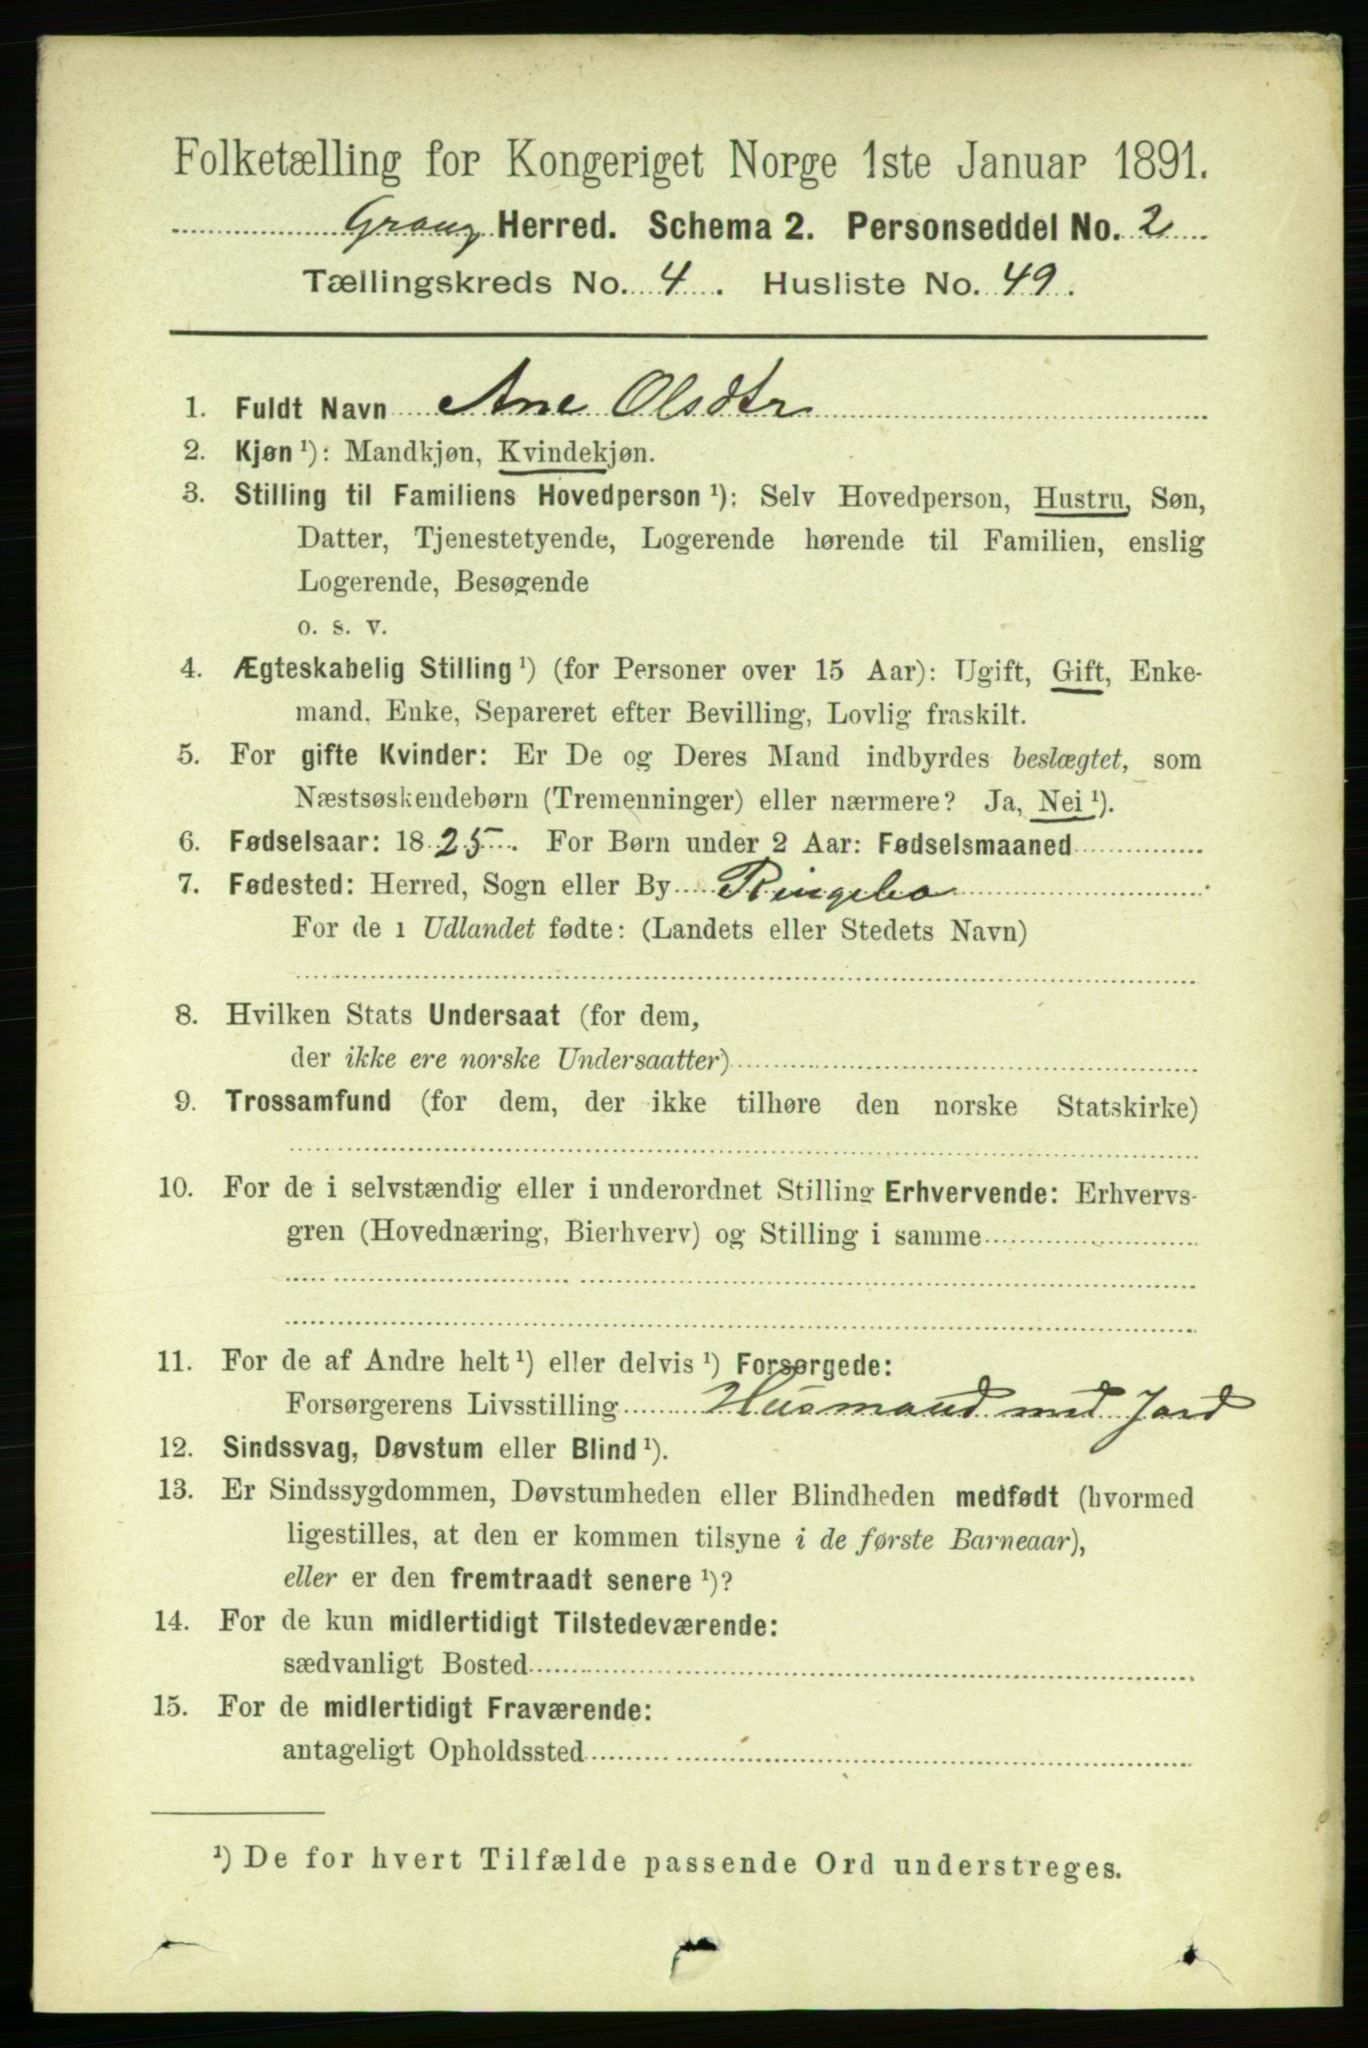 Folketælling for Kongeriget Norge 1ste Januar 1891.
Herred. Schema 2. Personseddel No. 2
Tællingskreds No. 4. Husliste No. 49.
1. Fuldt Navn Ane Olsdtr
2. Kjøn ¹): Mandkjøn, Kvindekjøn.
3. Stilling til Familiens Hovedperson ¹): Selv Hovedperson, Hustru, Søn,
Datter, Tjenestetyende, Logerende hørende til Familien, enslig
Logerende, Besøgende
o. s. v.
4. Ægteskabelig Stilling ¹) (for Personer over 15 Aar): Ugift, Gift, Enke-
mand, Enke, Separeret efter Bevilling, Lovlig fraskilt.
5. For gifte Kvinder: Er De og Deres Mand indbyrdes beslægtet, som
Næstsøskendebørn (Tremenninger) eller nærmere? Ja, Nei ¹).
6. Fødselsaar: 1825. For Børn under 2 Aar: Fødselsmaaned
7. Fødested: Herred, Sogn eller By Ringebo
For de i Udlandet fødte: (Landets eller Stedets Navn)
8. Hvilken Stats Undersaat (for dem,
der ikke ere norske Undersaatter)
9. Trossamfund (for dem, der ikke tilhøre den norske Statskirke)
10. For de i selvstændig eller i underordnet Stilling Erhvervende: Erhvervs-
gren (Hovednæring, Bierhverv) og Stilling i samme
11. For de af Andre helt ¹) eller delvis ¹) Forsørgede:
Forsørgerens Livsstilling Husmand med Jord
12. Sindssvag, Døvstum eller Blind ¹).
13. Er Sindssygdommen, Døvstumheden eller Blindheden medfødt (hvormed
ligestilles, at den er kommen tilsyne i de første Barneaar),
eller er den fremtraadt senere ¹)?
14. For de kun midlertidigt Tilstedeværende:
sædvanligt Bosted
15. For de midlertidigt Fraværende:
antageligt Opholdssted
¹) De for hvert Tilfælde passende Ord understreges.